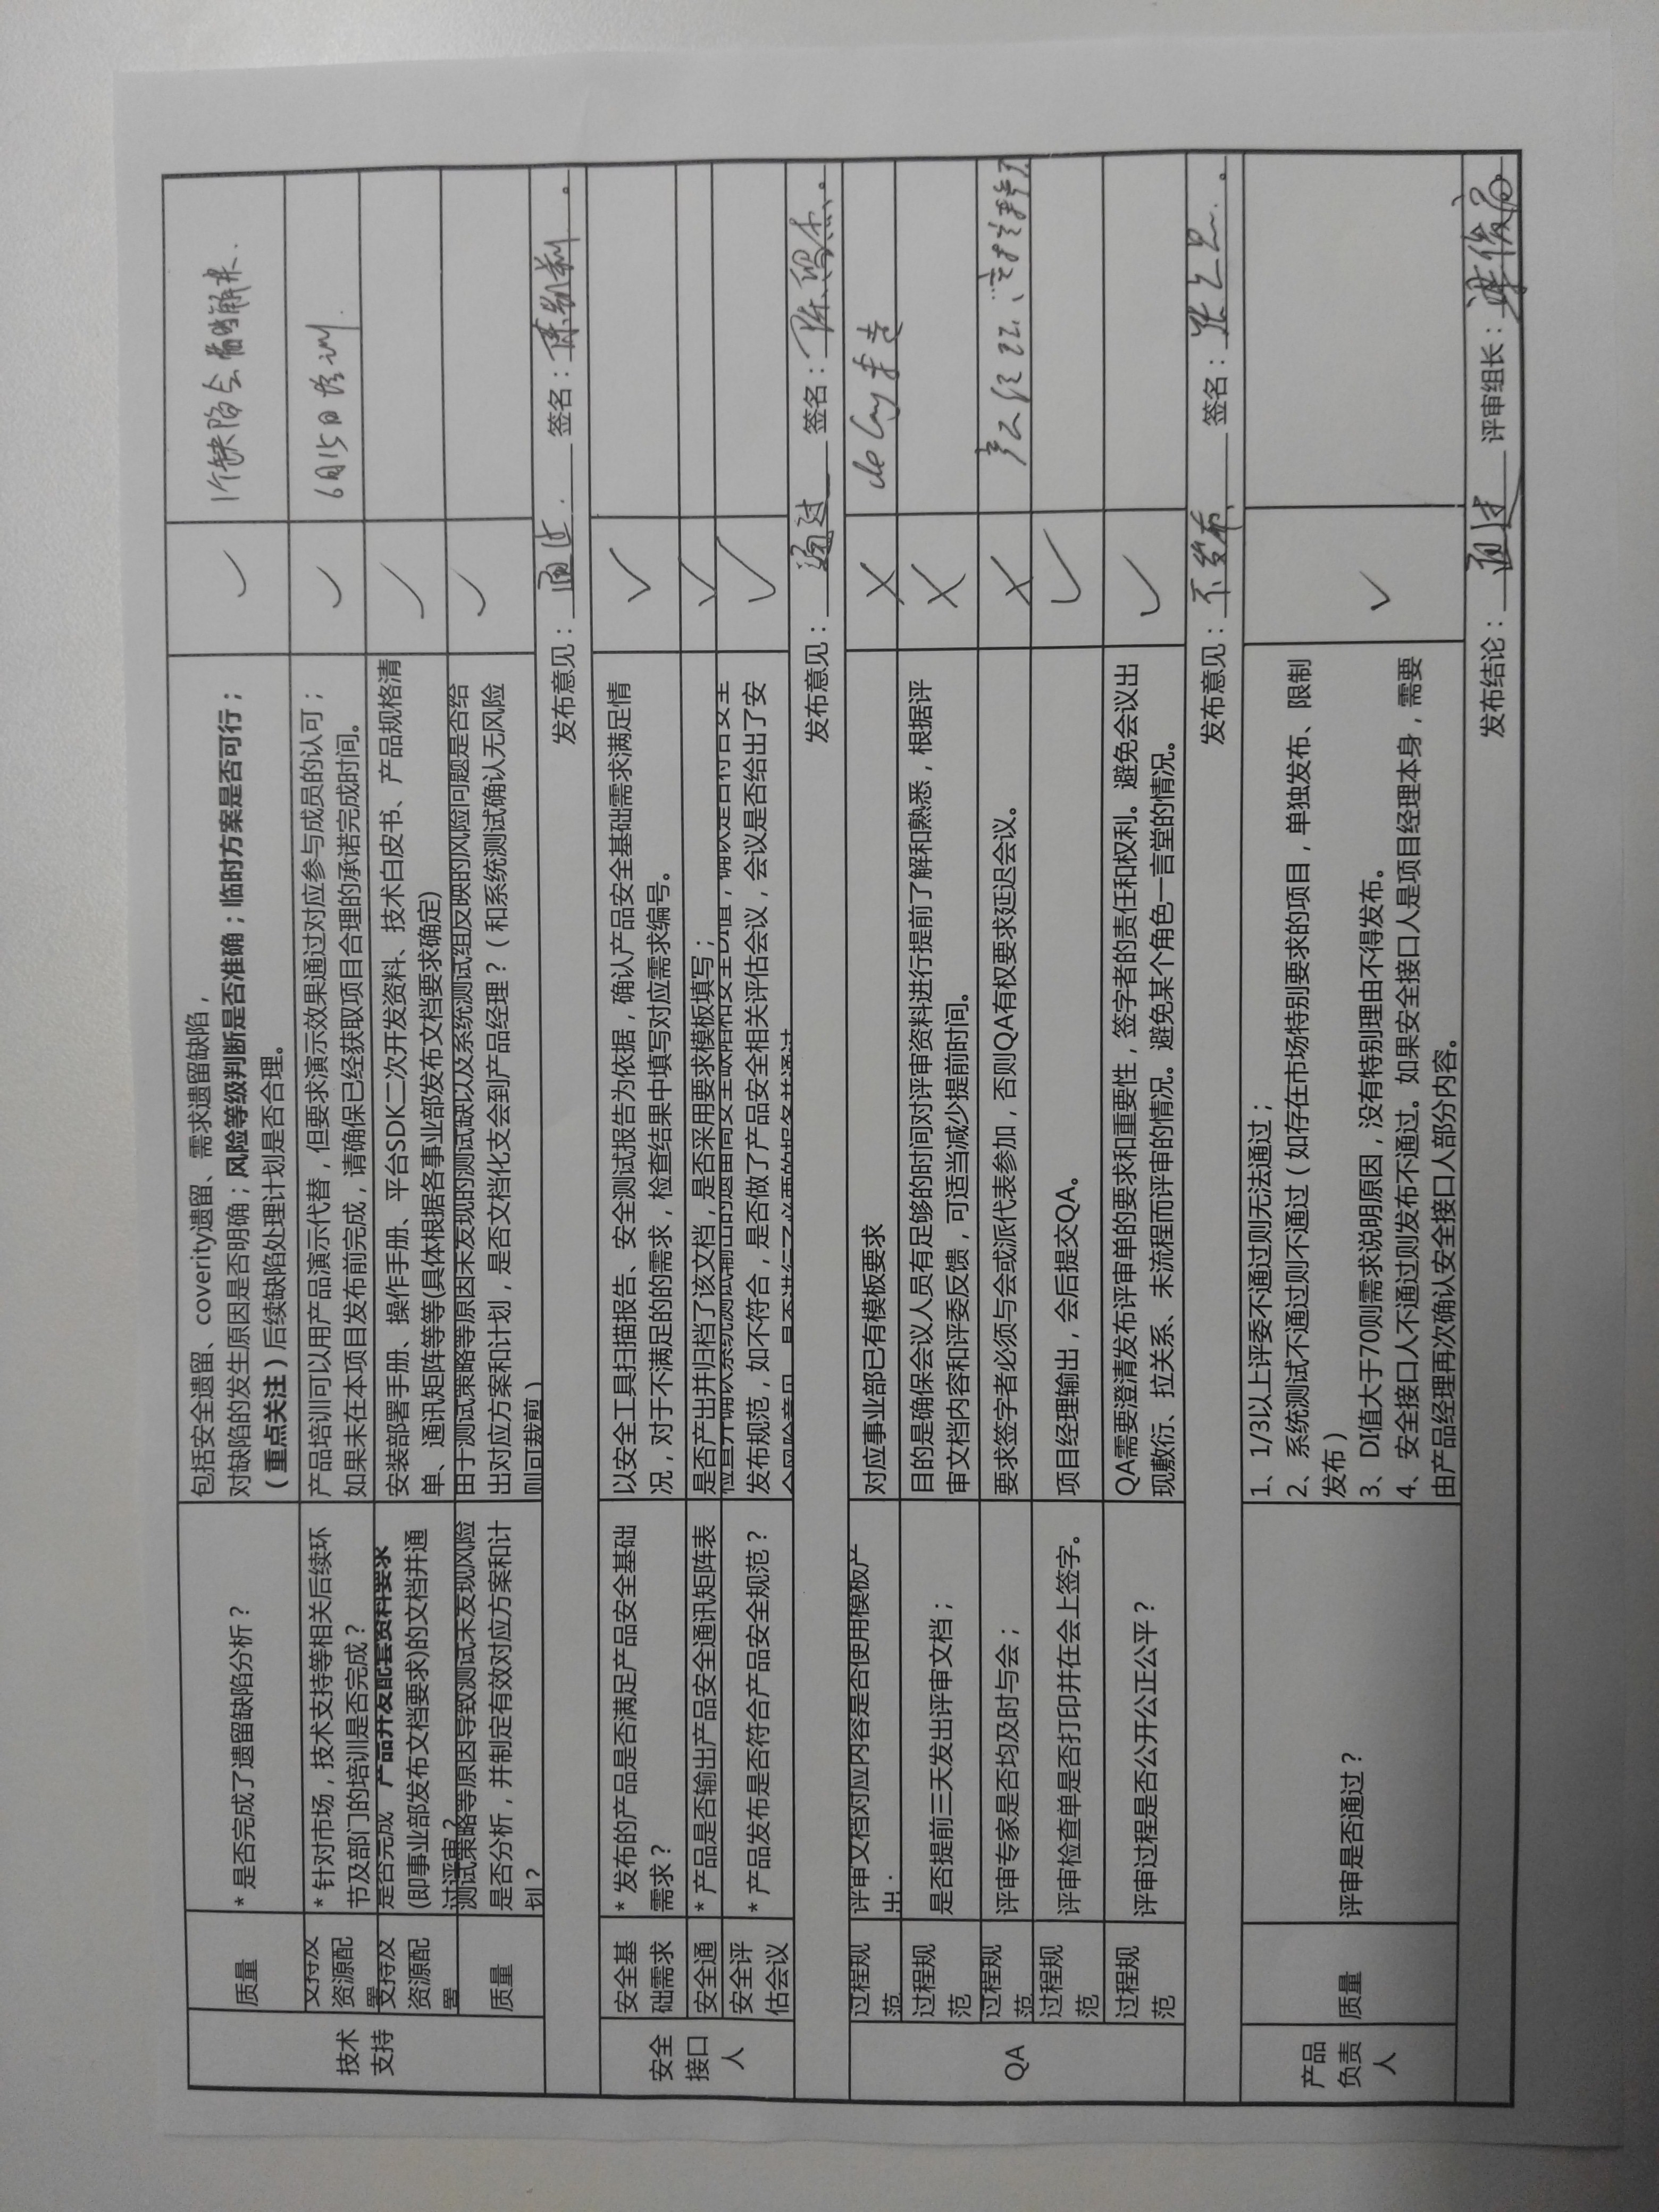 技术
支持
质量
* 是否完成了遗留缺陷分析？
包括安全遗留、coverity遗留、需求遗留缺陷，
对缺陷的发生原因是否明确；风险等级判断是否准确；临时方案是否可行；
（重点关注）后续缺陷处理计划是否合理。
1个缺陷会
支持及
资源配
置
* 针对市场，技术支持等相关后续环
节及部门的培训是否完成？
产品培训可以用产品演示代替，但要求演示效果通过对应参与成员的认可；
如果未在本项目发布前完成，请确保已经获取项目合理的承诺完成时间。
6月15日培训
支持及
资源配
置
是否完成 产品开发配套资料要求
(即事业部发布文档要求)的文档并通
过评审？
安装部署手册、操作手册、平台SDK二次开发资料、技术白皮书、产品规格清
单、通讯矩阵等等(具体根据各事业部发布文档要求确定)
质量
测试策略等原因导致测试未发现风险
是否分析，并制定有效对应方案和计
划？
由于测试策略等原因未发现的测试缺以及系统测试组反映的风险问题是否给
出对应方案和计划，是否文档化支会到产品经理？（和系统测试确认无风险
则可裁剪）
发布意见：通过. 签名：
安全
接口
人
安全基
础需求
* 发布的产品是否满足产品安全基础
需求？
以安全工具扫描报告、安全测试报告为依据，确认产品安全基础需求满足情
况，对于不满足的的需求，检查结果中填写对应需求编号。
安全通
* 产品是否输出产品安全通讯矩阵表
是否产出并归档了该文档，是否采用要求模板填写；
安全评
估会议
* 产品发布是否符合产品安全规范？
发布规范，如不符合，是否做了产品安全相关评估会议，会议是否给出了安
发布意见：通过 签名：
QA
过程规
范
评审文档对应内容是否使用模板产
出.
对应事业部已有模板要求
过程规
范
是否提前三天发出评审文档；
目的是确保会议人员有足够的时间对评审资料进行提前了解和熟悉，根据评
审文档内容和评委反馈，可适当减少提前时间。
过程规
范
评审专家是否均及时与会；
要求签字者必须与会或派代表参加，否则QA有权要求延迟会议。
过程规
范
评审检查单是否打印并在会上签字.
项目经理输出，会后提交QA。
过程规
范
评审过程是否公开公正公平？
QA需要澄清发布评审单的要求和重要性，签字者的责任和权利。避免会议出
现敷衍、拉关系、未流程而评审的情况。避免某个角色一言堂的情况。
发布意见：不发布 签名：
产品
负责
人
质量
评审是否通过？
1、1/3以上评委不通过则无法通过；
2、系统测试不通过则不通过（如存在市场特别要求的项目，单独发布、限制
发布）
3、DI值大于70则需求说明原因，没有特别理由不得发布。
4、安全接口人不通过则发布不通过。如果安全接口人是项目经理本身，需要
由产品经理再次确认安全接口人部分内容。
发布结论：通过 评审组长：